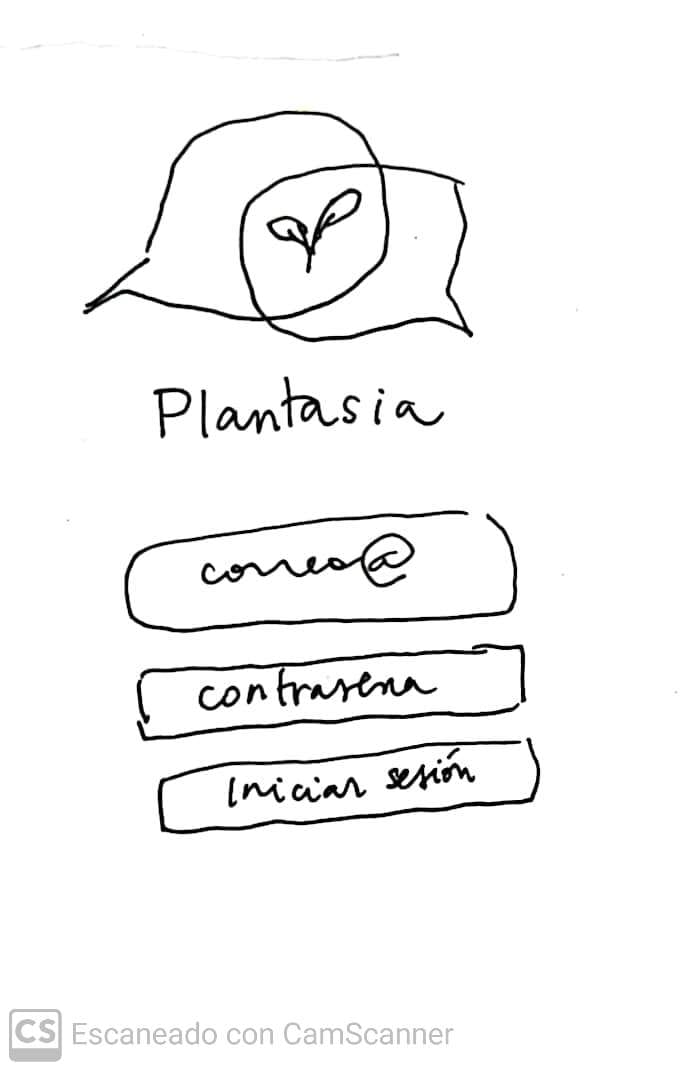 Plantasia
correo@
contrasena
Iniciar sesión
CS Escaneado con CamScanner